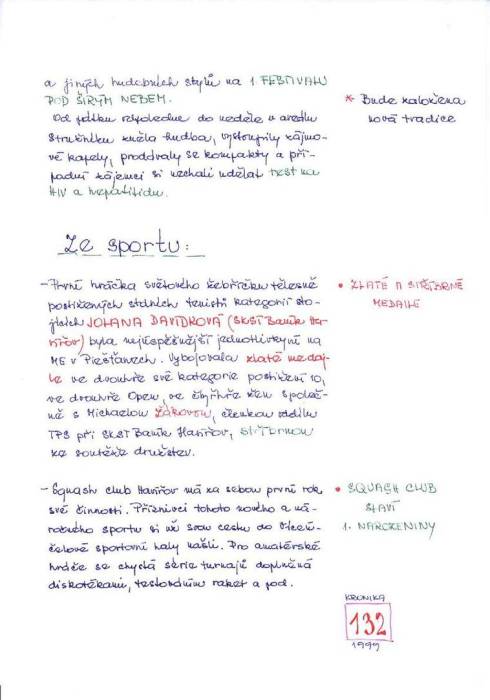 a jiných hudebních stylů na 1 FESTIVALU
POD ŠIRÝM NEBEM.
Od pátku odpoledne do neděle v areálu
Stružníku zněla hudba, vystoupily zájmo-
vé kapely, prodávaly se kompakty a pří-
padní zájemci si nechali udělat test na
HIV a hepatitidu.
* Bude založena
nová tradice
Ze sportu:
- První hráčka světového žebříčku tělesně
postižených stolních tenistů kategorií sto-
jících JOLANA DAVÍDKOVÁ (SKST Baník Ha-
vířov) byla nejúspěšnější jednotlivkyní na
ME v Piešťanech. Vybojovala zlaté medai-
le ve dvouhře své kategorie postižení 10,
ve dvouhře Open, ve čtyřhře žen společ-
ně s Michaelou ŽÁKOVOU, členkou oddílu
TPS při SKST Baník Havířov, stříbrnou
za soutěže družstev.
• ZLATÉ A STŘÍBRNÉ
MEDAILE
- Squash club Havířov má za sebou první rok
své činnosti. Příznivci tohoto nového a ná-
ročného sportu si už svou cestu do Více-
účelové sportovní haly našli. Pro amatérské
hráče se chystá série turnajů doplněná
diskotékami, testováním raket a pod.
• SQUASH CLUB
SLAVÍ
1. NAROZENINY
KRONIKA
132
1999